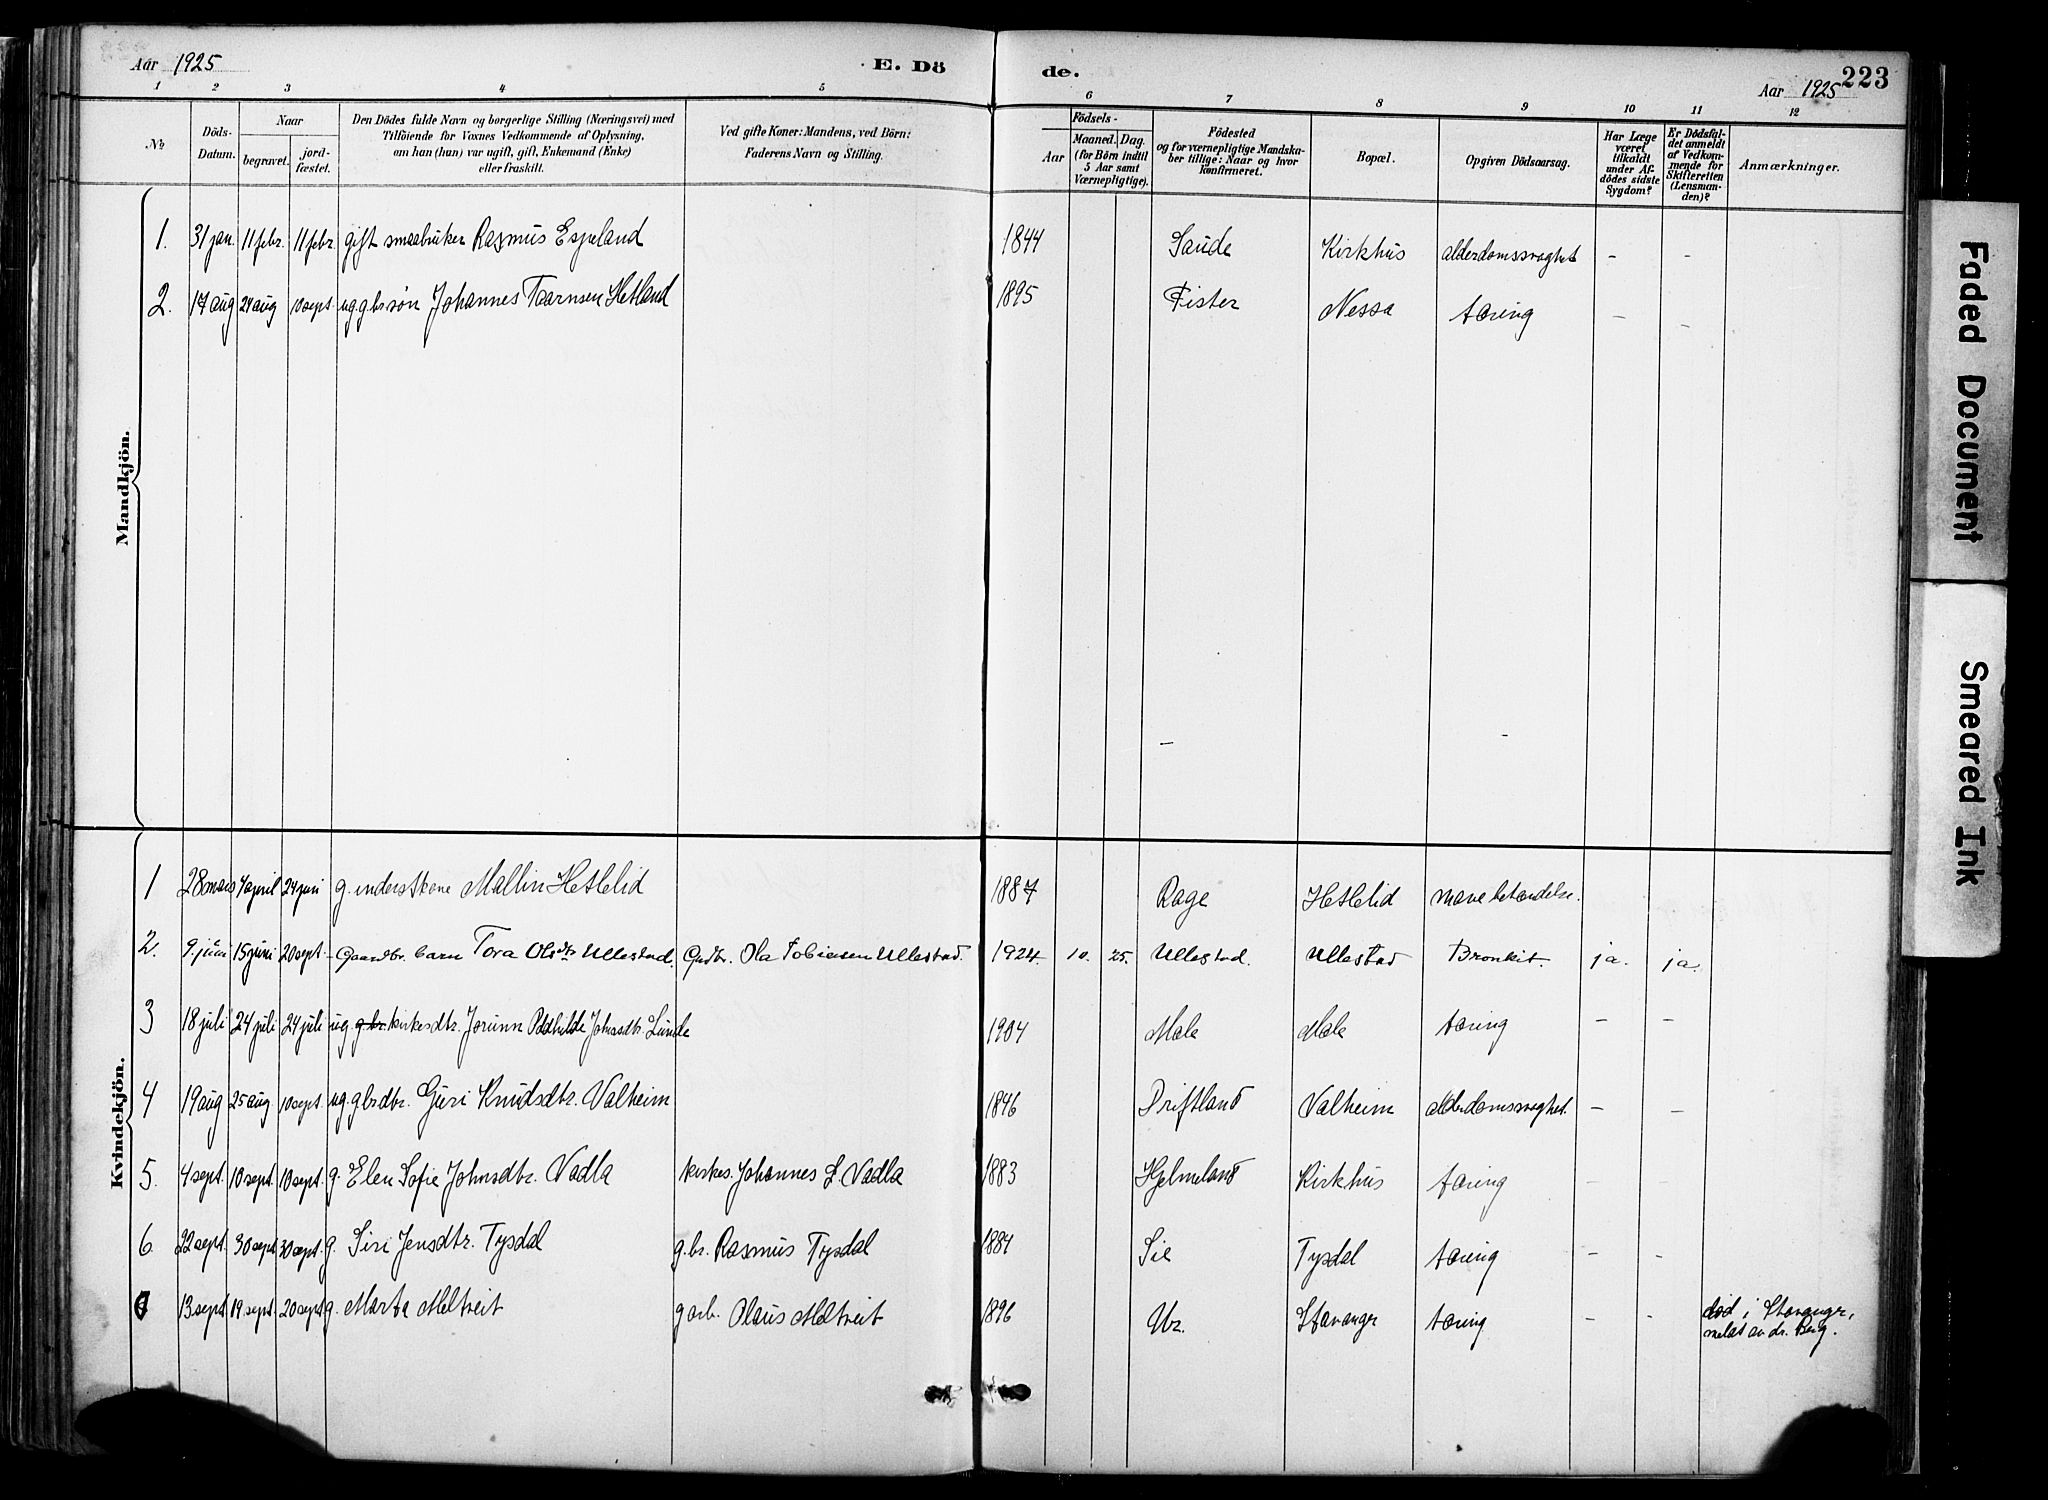 Aar 1925
E. Dö
de.
Aar 1925
223
1 2 3 4 5 6 7 8 9 10 11 12
№
Döds-Datum.
Naar
begravet.
jord-fæstet.
Den Dödes fulde Navn og borgerlige Stilling (Næringsvei) med
Tilföiende for Voxnes Vedkommende af Oplysning,
om han (hun) var ugift, gift, Enkemand (Enke)
eller fraskilt.
Ved gifte Koner: Mandens, ved Börn:
Faderens Navn og Stilling.
Födsels-
Aar
Maaned. Dag.
(for Börn indtil
5 Aar samt
Værnepligtige).
Födested
og for værnepligtige Mandska-
ber tillige: Naar og hvor
konfirmeret.
Bopæl.
Opgiven Dödsaarsag.
Har Læge
været
tilkaldt
under Af-
dödes sidste
Sygdom?
Er Dödsfal-
det anmeldt
af Vedkom-
mende for
Skifteretten
(Lensman-
den)?
Anmærkninger.
Mandkjön.
1. 31 jan. 11 febr. 11 febr. gift smaabruker Rasmus Espeland 1844 Saude Kirkhus alderdomssvaghet - -
2. 17 aug 24 aug 10 sept. ug. g.br.søn Johannes Taarnsen Hetland 1895 Fister Nessa tæring - -
Kvindekjön.
1 28 mars 4 april 24 juni g. Mallin Hetlelid 1887 Rage Hetlelid mavebetændelse.
2. 9. juni 15 juni 20 sept. Gaardbr. barn Tora Olsdtr Ullestad. Grdbr. Ola Tobiasen Ullestad. 1924. 10. 25. Ullestad. Ullestad Bronkit. ja. ja.
3 18 juli 24 juli 24 juli ug. g.br. kirkesdtr. Jorunn Oddhilde Johnsdtr. Lunde 1904 Mæle Mæle tæring - -
4 19 aug 25 aug. 10 sept. ug. gbrdtr. Guri Knudsdtr. Valheim 1846 Driftland Valheim alderdomssvaghet. - -
5. 4 sept. 10 sept. 10 sept. g. Elen Sofie Johnsdtr. Vadla kirkes. Johannes L. Vadla 1883 Hjelmeland Kirkhus tæring - -
6 22 sept. 30 sept 30 sept. g. Siri Jensdtr. Tysdal g.br. Rasmus Tysdal 1884 Sie Tysdal tæring - -
13 sept. 19 sept. 20 sept g. Marta Meltveit g arb. Olaus Meltveit 1896 Ur. Stavanger tæring - - død i Stavanger,
melat av dr. Berg.
Faded Document
Smeared Ink